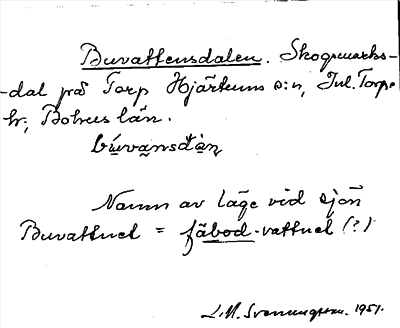 Buvattensdalen. Skogsmarks-
-dal på Torp Hjärtums s:n, Inl. Torpe
hr, Bohus län.
búvansdàn
Namn av läge vid sjön
Buvattnet = fäbod-vattnet (?)
L.M. Svenungsson. 1951.